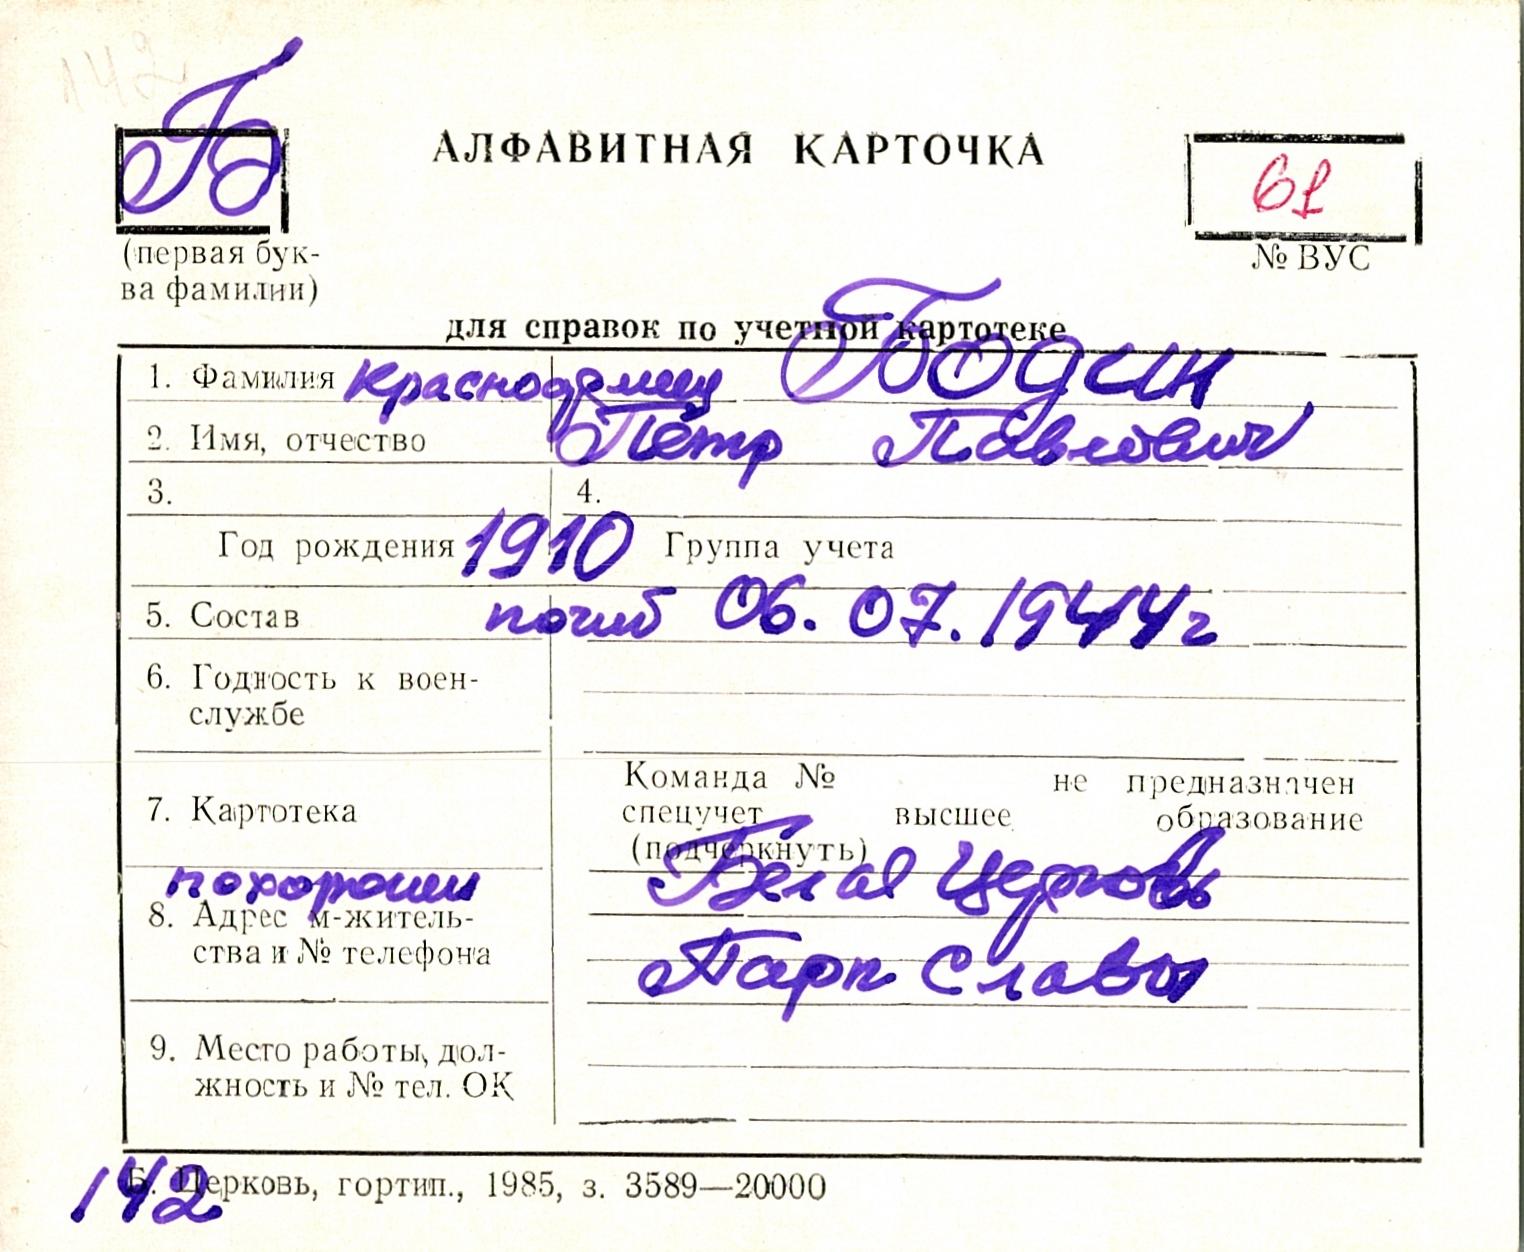 142
Б
АЛФАВИТНАЯ КАРТОЧКА
61
(первая бук-
ва фамилии)
№ ВУС
для справок по учетной картотеке
1. Фамилия красноармеец Бодин
2. Имя, отчество Пётр Павлович
3. 4.
Год рождения 1910 Группа учета
5. Состав погиб 06.07.1944г
6. Годность к воен-
службе
Команда № не предназначен
7. Картотека спецучет высшее образование
(подчеркнуть)
похоронен Белая Церковь
8. Адрес м-житель-
ства и № телефона Парк Славы
9. Место работы, дол-
жность и № тел. ОК
142
Б. Церковь, гортип., 1985, з. 3589—20000